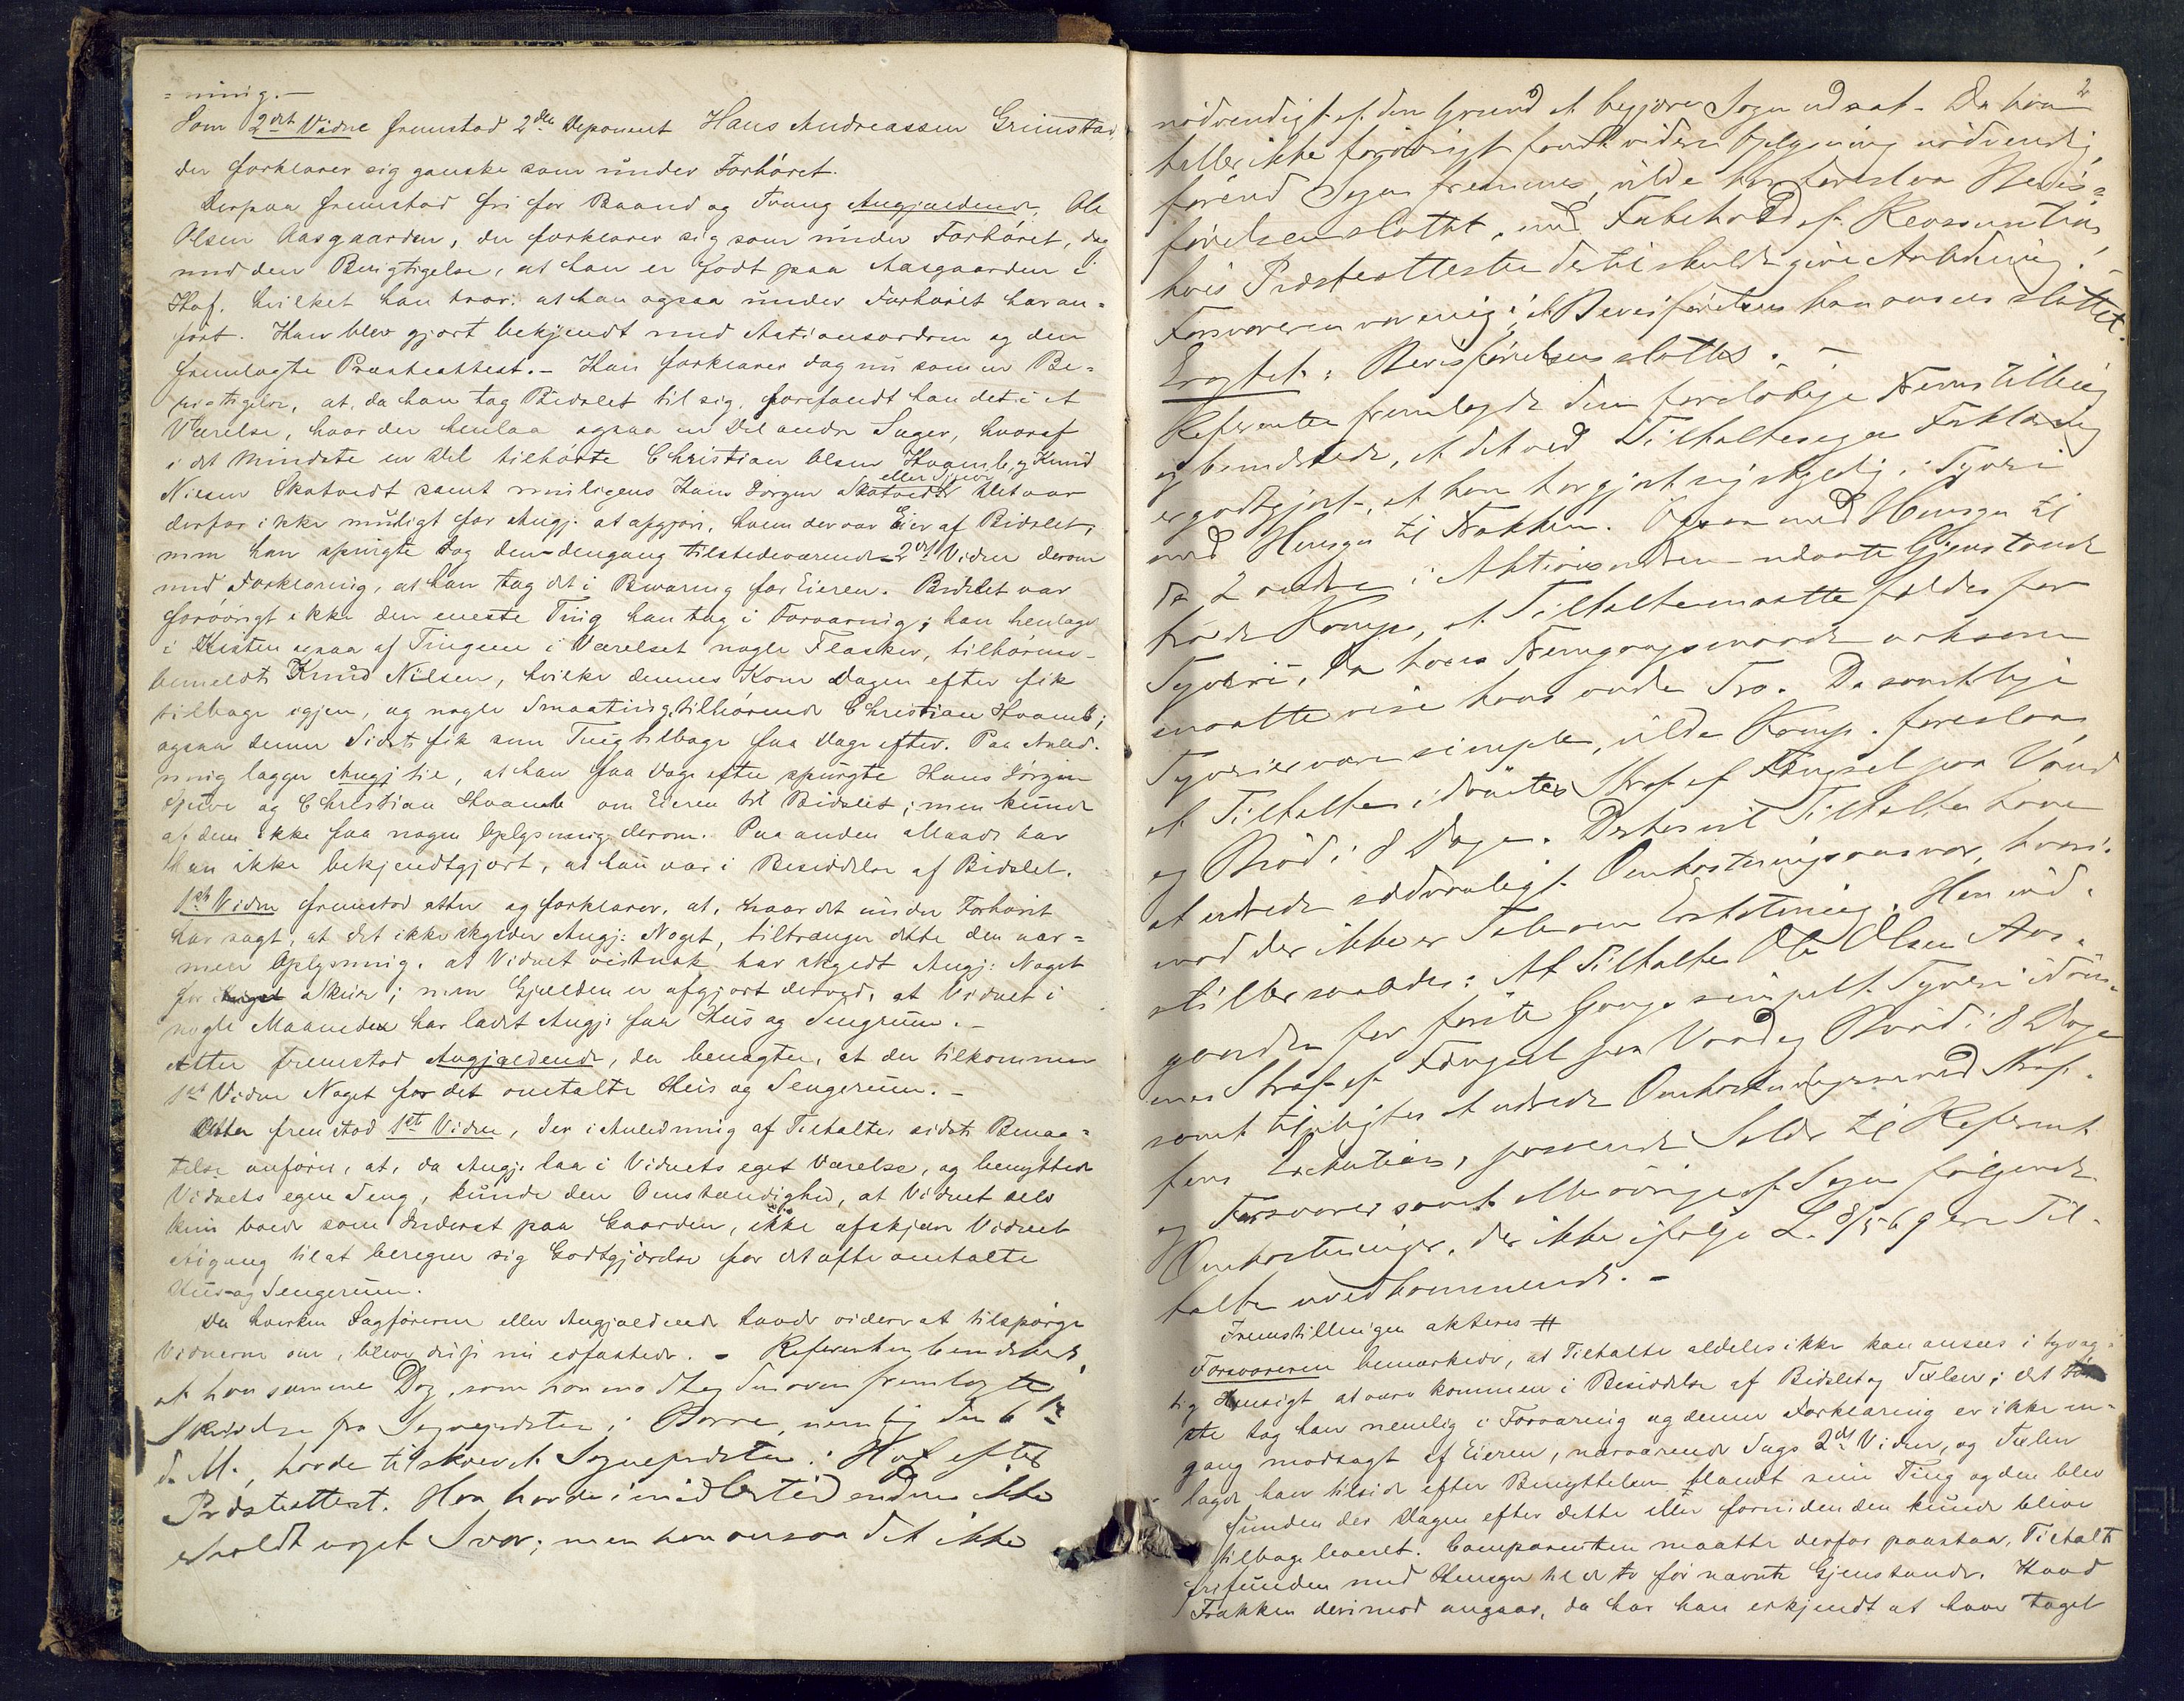 =ning.-
Som 2det Vidne fremstod 2den Deponent Hans Andreassen Grimstad,
der forklarer sig ganske som under Forhöret.
Derpaa fremstod fri for Baand og Tvang Angjældende, Ole
Olsen Aasgaarden, der forklarer sig som under Forhöret, dog
med den Berigtigelse, at han er födt paa Aasgaarden i
Hof, hvilket han tror, at han ogsaa under Forhöret har an=
fört. Han blev gjort bekjendt med Actionsordren og den
fremlagte Præsteattest. - Han forklarer dog nu som en Be=
rigtigelse, at, da han tog Bidslet til sig, forefandt han det i et
Værelse, hvor der henlaa ogsaa en Del andre Sager, hvoraf
i det Mindste en Del tilhörte Christian Olsen Hvamb, og Knud
Nilsen Skatvedt samt muligens Hans Jörgen Skatvedt eller Djuve. Det var
derfor ikke muligt for Angj. at afgjöre, hvem der var Eier af Bidslet;
men han spurgte dog den dengang tilstedeværende 2det Vidne derom
med Forklaring, at han tog det i Bevaring for Eieren. Bidslet var
forövrigt ikke den eneste Ting han tog i Forvaring; han henlagde
i Kisten ogsaa af Tingene i Værelset nogle Flasker, tilhörende
bemeldte Knud Nilsen, hvilke dennes Kone Dagen efter fik
tilbage igjen, og nogle Smaating, tilhörende Christian Hvamb;
ogsaa denne Sidste fik sine Ting tilbage faa Dage efter. Paa Anled=
ning lægger Angj. til, at han faa Dage efter spurgte Hans Jörgen
Djuve og Christian Hvamb om Eieren til Bidslet; men kunde
af dem ikke faa nogen Oplysning derom. Paa anden Maade har
han ikke bekjendtgjort, at han var i Besiddelse af Bidslet.
1ste Vidne fremstod atter og forklarer, at, naar det under Forhöret
har sagt, at det ikke skylder Angj: Noget, tiltrænger dette den nær=
mere Oplysning, at Vidnet vistnok har skyldt Angj: Noget
for Skiver; men Gjælden er afgjort derved, at Vidnet i
nogle Maaneder har ladt Angj: faa Hus og Sengerum. -
Atter fremstod Angjældende, der benægter, at der tilkommer
1ste Vidne Noget for det omtalte Hus og Sengerum. -
Atter fremstod 1ste Vidne, der i Anledning af Tiltaltes sidste Benæg=
telse anförer, at, da Angj. laa i Vidnets eget Værelse, og benyttede
Vidnets egen Seng, kunde den Omstændighed, at Vidnet selv
kun boede som Inderst paa Gaarden, ikke afskjære Vidnet
Adgang til at beregne sig Godtgjörelse for det ofte omtalte
Hus og Sengerum.
Da hverken Sagförerne eller Angjældende havde videre at tilspörge
Vidnerne om, bleve disse nu edfæstede. - Referenten bemærkede,
at han samme Dag, som han modtog den oven fremlagte
Skrivelse fra Sognepræsten i Borre, nemlig den 6te
d. M., havde tilskrevet Sognepræsten i Hof efter
Præsteattest. Han havde imidlertid endnu ikke
erholdt noget Svar; men han ansaa det ikke
2
nödvendigt af den Grund at begjære Sagen udsat. Da han
heller ikke forövrigt fandt videre Oplysning nödvendig,
förend Sagen fremmes, vilde han foreslaa Bevis=
förelsen sluttet, med Forbehold af Reassumtion,
hvis Præsteattesten dertil skulde give Anledning. -
Forsvareren var enig i, at Bevisförelsen kan ansees sluttet.
Eragtet: Bevisförelsen sluttes. -
Referenten fremlagde den foreløbige Fremstilling
og bemærkede, at det ved Tiltaltes egen Forklaring
er godtgjort, at han har gjort sig skyldig i Tyveri
med Hensyn til Frakken. Ogsaa med Hensyn til
de 2 andre i Aktionsordren nævnte Gjenstande
troede Komp., at Tiltalte maatte fældes for
Tyveri, da hans Fremgangsmaade voksom
maatte vise hans onde Tro. Da samtlige
Tyverier vare simple, vilde Komp. foreslaa,
at Tiltalte idömtes Straf af Fængsel paa Vand
og Bröd i 8 Dage. Derhos vil Tiltalte have
at udrede sædvanligt Omkostningsansvar, hvori=
mod der ikke er Tale om Erstatning. Han ind=
stiller saaledes: At Tiltalte Ole Olsen Aas=
gaarden for förste Gangs simpelt Tyveri idöm=
mes Straf af Fængsel paa Vand og Bröd i 8 Dage
samt tilpligtes at udrede Omkostningerne ved Straf=
fens Exekution, passende Salær til Referent
og Forsvarer samt alle övrige af Sagen fölgende
Omkostninger, der ikke ifölge L. 8/5 69 ere Til=
talte uvedkommende. -
Fremstillingen akteres #
Forsvareren bemærkede, at Tiltalte aldeles ikke kan ansees i tyvag=
tig Hensigt at være kommen i Besiddelse af Bidslet og Tælen; det För=
ste tog han nemlig i Forvaring og denne Forklaring er ikke en=
gang modsagt af Eieren, nærværende Sags 2det Vidne, og Tælen
lagde han tilside efter Benyttelsen blandt sine Ting og den blev
funden der Dagen efter dette eller forinden den kunde blive
tilbageleveret. Comparenten maatte derfor paastaa, Tiltalte
frifunden med Hensyn til de to för nævnte Gjenstande. Hvad
Frakken derimod angaar, da har han erkjendt at have taget